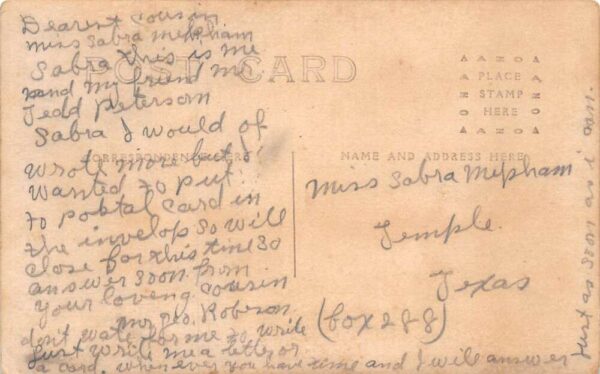 Dearest Cousin
Miss Sabra Mepham
Sabra this is me
and my friend Mr
Tedd Peterson
Sabra I would of
wrote more but I
wanted to put
to postal card in
the invelop so will
close for this time so
answer soon from
your loveng cousin
Mr geo. Roberson
don't wate for me to write
Just write me a letter or
a card. whenever you have time and I will answer
Just as soon as i can.
POST CARD
AZO
PLACE
STAMP
HERE
CORRESPONDENCE HERE
NAME AND ADDRESS HERE
Miss Sabra Mepham
Temple.
Texas
(box 288)